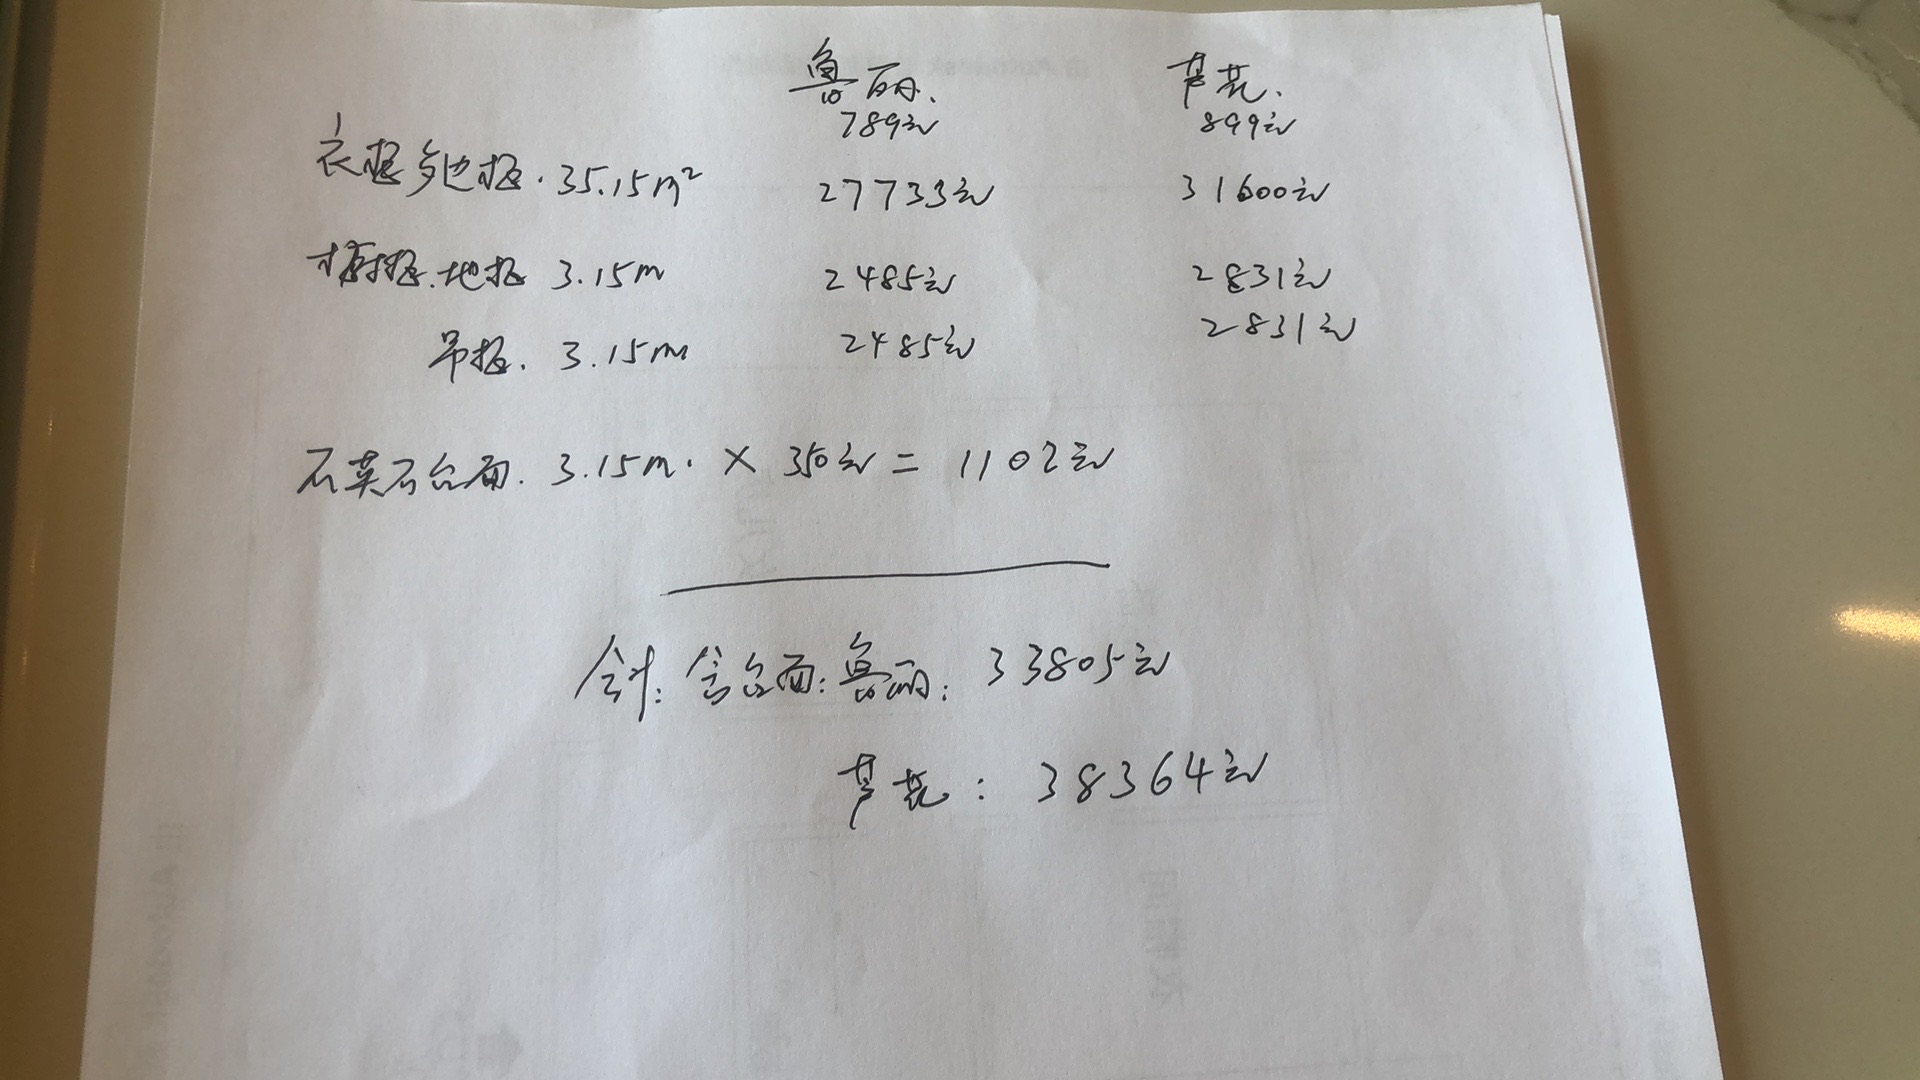 鲁丽. 芦花.
789元 899元
衣柜多地柜. 35.15m² 27733元 31600元
橱柜.地柜 3.15m 2485元 2831元
吊柜. 3.15m 2485元 2831元
石英石台面. 3.15m. × 350元 = 1102元
合计: 含台面: 鲁丽: 33805元
芦花: 38364元